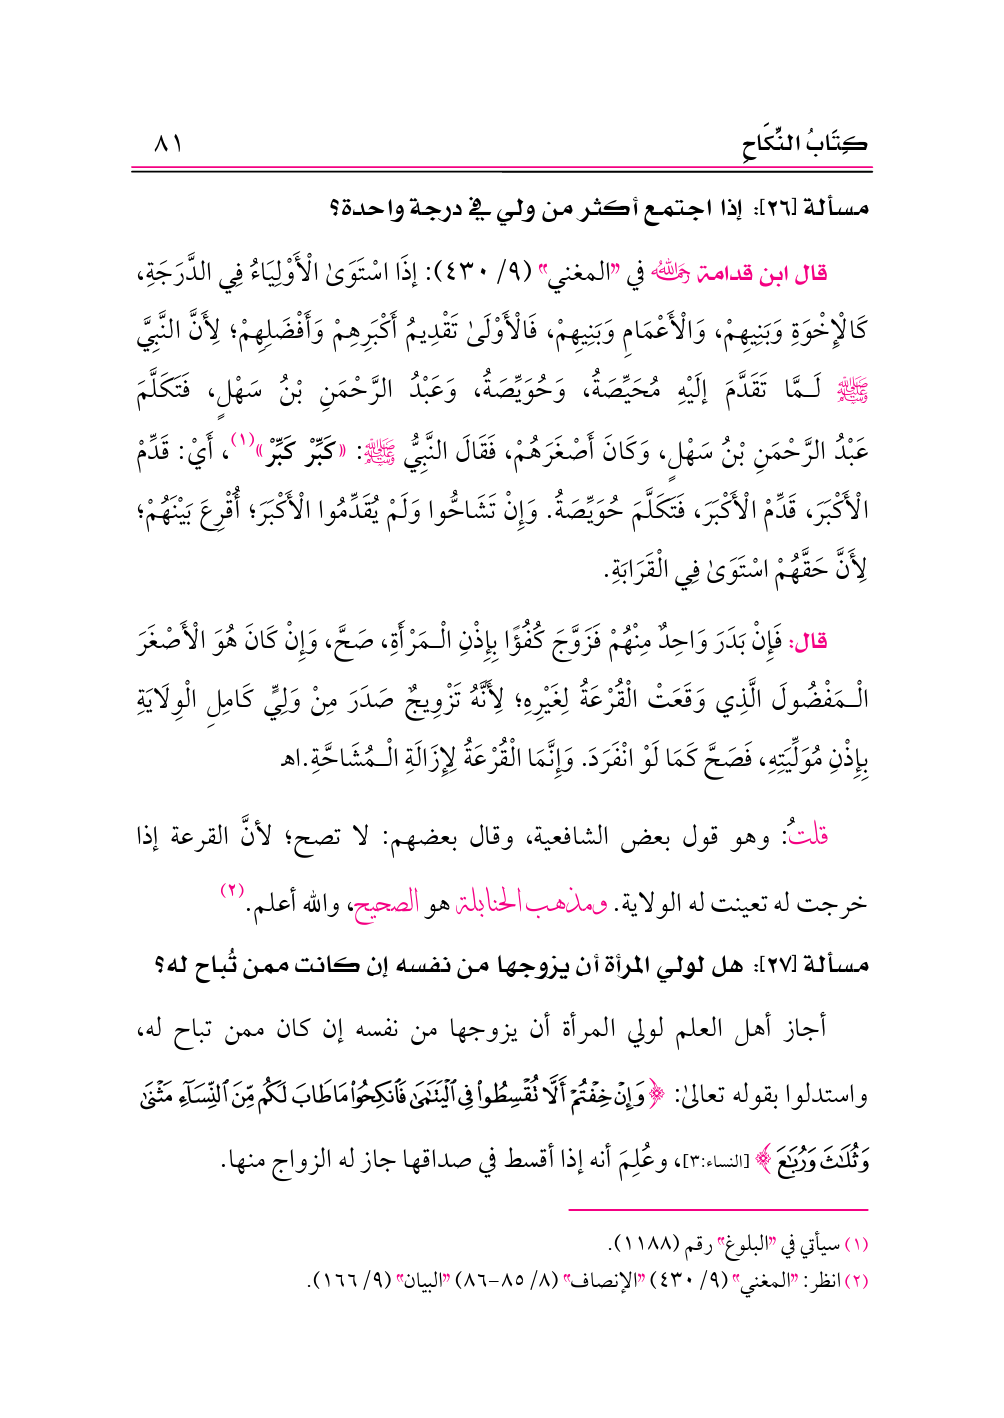 كِتَابُ النِّكَاحِ ٨١
مسألة [٢٦]: إذا اجتمع أكثر من ولي في درجة واحدة؟
قال ابن قدامة رحمه الله في "المغني" (٩/ ٤٣٠): إِذَا اسْتَوَىٰ الْأَوْلِيَاءُ فِي الدَّرَجَةِ،
كَالْإِخْوَةِ وَبَنِيهِمْ، وَالْأَعْمَامِ وَبَنِيهِمْ، فَالْأَوْلَىٰ تَقْدِيمُ أَكْبَرِهِمْ وَأَفْضَلِهِمْ؛ لِأَنَّ النَّبِيَّ
ﷺ لَـمَّا تَقَدَّمَ إلَيْهِ مُحَيِّصَةُ، وَحُوَيِّصَةُ، وَعَبْدُ الرَّحْمَنِ بْنُ سَهْلٍ، فَتَكَلَّمَ
عَبْدُ الرَّحْمَنِ بْنُ سَهْلٍ، وَكَانَ أَصْغَرَهُمْ، فَقَالَ النَّبِيُّ ﷺ: «كَبِّرْ كَبِّرْ»(١)، أَيْ: قَدِّمْ
الْأَكْبَرَ، قَدِّمْ الْأَكْبَرَ، فَتَكَلَّمَ حُوَيِّصَةُ. وَإِنْ تَشَاحُّوا وَلَمْ يُقَدِّمُوا الْأَكْبَرَ؛ أُقْرِعَ بَيْنَهُمْ؛
لِأَنَّ حَقَّهُمْ اسْتَوَىٰ فِي الْقَرَابَةِ.
قال: فَإِنْ بَدَرَ وَاحِدٌ مِنْهُمْ فَزَوَّجَ كُفُؤًا بِإِذْنِ الْـمَرْأَةِ، صَحَّ، وَإِنْ كَانَ هُوَ الْأَصْغَرَ
الْـمَفْضُولَ الَّذِي وَقَعَتْ الْقُرْعَةُ لِغَيْرِهِ؛ لِأَنَّهُ تَزْوِيجٌ صَدَرَ مِنْ وَلِيٍّ كَامِلِ الْوِلَايَةِ
بِإِذْنِ مُوَلِّيَتِهِ، فَصَحَّ كَمَا لَوْ انْفَرَدَ. وَإِنَّمَا الْقُرْعَةُ لِإِزَالَةِ الْـمُشَاحَّةِ.اﻫ
قلتُ: وهو قول بعض الشافعية، وقال بعضهم: لا تصح؛ لأنَّ القرعة إذا
خرجت له تعينت له الولاية. ومذهب الحنابلة هو الصحيح، والله أعلم.(٢)
مسألة [٢٧]: هل لولي المرأة أن يزوجها من نفسه إن كانت ممن تُباح له؟
أجاز أهل العلم لولي المرأة أن يزوجها من نفسه إن كان ممن تباح له،
واستدلوا بقوله تعالىٰ: ﴿وَإِنْ خِفْتُمْ أَلَّا تُقْسِطُوا۟ فِي ٱلْيَتَٰمَىٰ فَٱنكِحُوا۟ مَا طَابَ لَكُم مِّنَ ٱلنِّسَآءِ مَثْنَىٰ
وَثُلَٰثَ وَرُبَٰعَ﴾ [النساء:٣]، وعُلِمَ أنه إذا أقسط في صداقها جاز له الزواج منها.
(١) سيأتي في "البلوغ" رقم (١١٨٨).
(٢) انظر: "المغني" (٩/ ٤٣٠) "الإنصاف" (٨/ ٨٥-٨٦) "البيان" (٩/ ١٦٦).